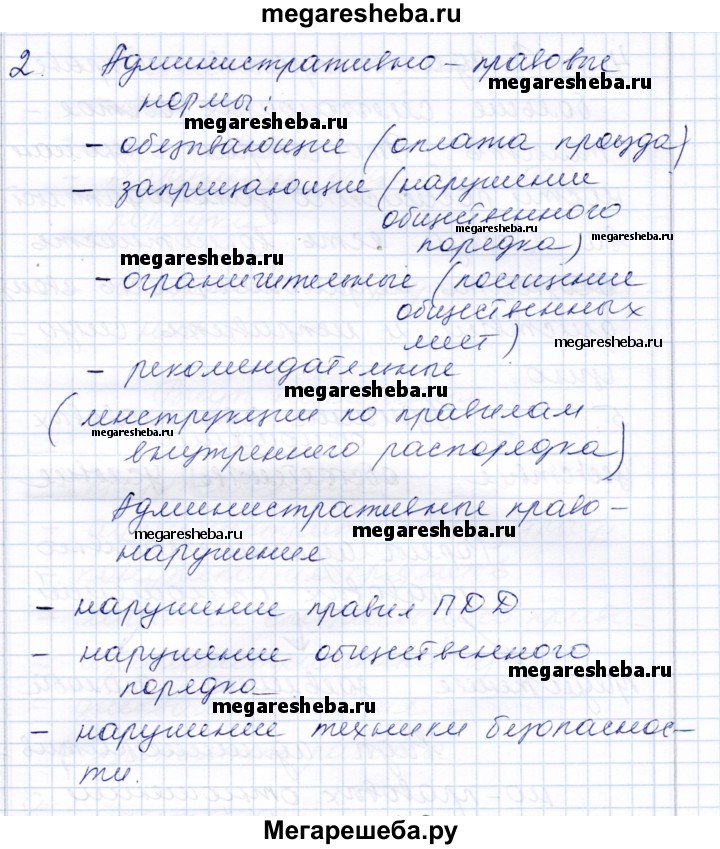 megaresheba.ru
2. Административно – правовые
megaresheba.ru
нормы:
megaresheba.ru
– обязывающие (оплата проезда)
– запрещающие (нарушении
общественного
порядка)
megaresheba.ru
megaresheba.ru
– ограничительные (посещение
общественных
мест)
megaresheba.ru
– рекомендательные
megaresheba.ru
(инструкции по правилам
megaresheba.ru
внутреннего распорядка)
Административные право–
megaresheba.ru
megaresheba.ru
нарушения
– нарушение правил ПДД
– нарушение общественного
megaresheba.ru
порядка
megaresheba.ru
– нарушение техники безопаснос–
ти.
Мегарешеба.ру